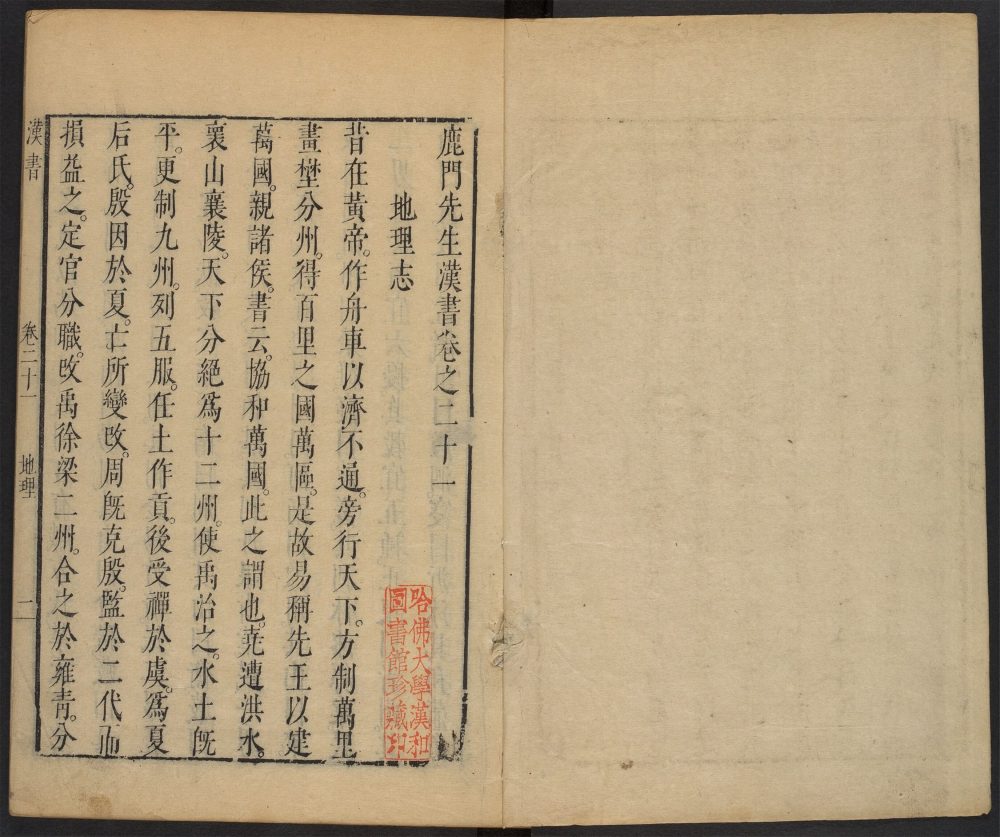 鹿門先生漢書卷之二十一
地理志
昔在黃帝。作舟車以濟不通。旁行天下。方制萬里
畫壄分州。得百里之國萬區。是故易稱先王以建
萬國。親諸侯。書云。協和萬國。此之謂也。堯遭洪水。
襄山襄陵。天下分絕爲十二州。使禹治之。水土旣
平。更制九州。列五服。任土作貢。後受禪於虞。爲夏
后氏。殷因於夏。亡所變攺。周旣克殷。監於二代而
損益之。定官分職。攺禹徐梁二州。合之於雍青。分
漢書
卷二十一
地理
哈佛大學漢和
圖書館珍藏印